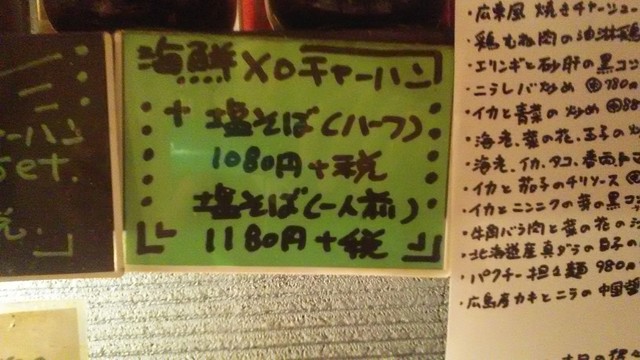 海鮮XOチャーハン
+ 塩そば(ハーフ)
1080円+税
塩そば(一人前)
1180円+税
ーハン
set.
税
・広東風 焼きチャーシュー
・鶏むね肉の油淋鶏
・エリンギと砂肝の黒コシ
・ニラレバ炒め
・イカと青菜の炒め
・海老、菜の花、玉子の
・海老、イカ、タコ、春雨
・イカと茄子のチリソース
・イカとニンニクの芽の黒コ
・牛肉バラ肉と菜の花の
・北海道産真ダラの白子の
・パクチー担々麺 980円
・広島産カキとニラの中国醤